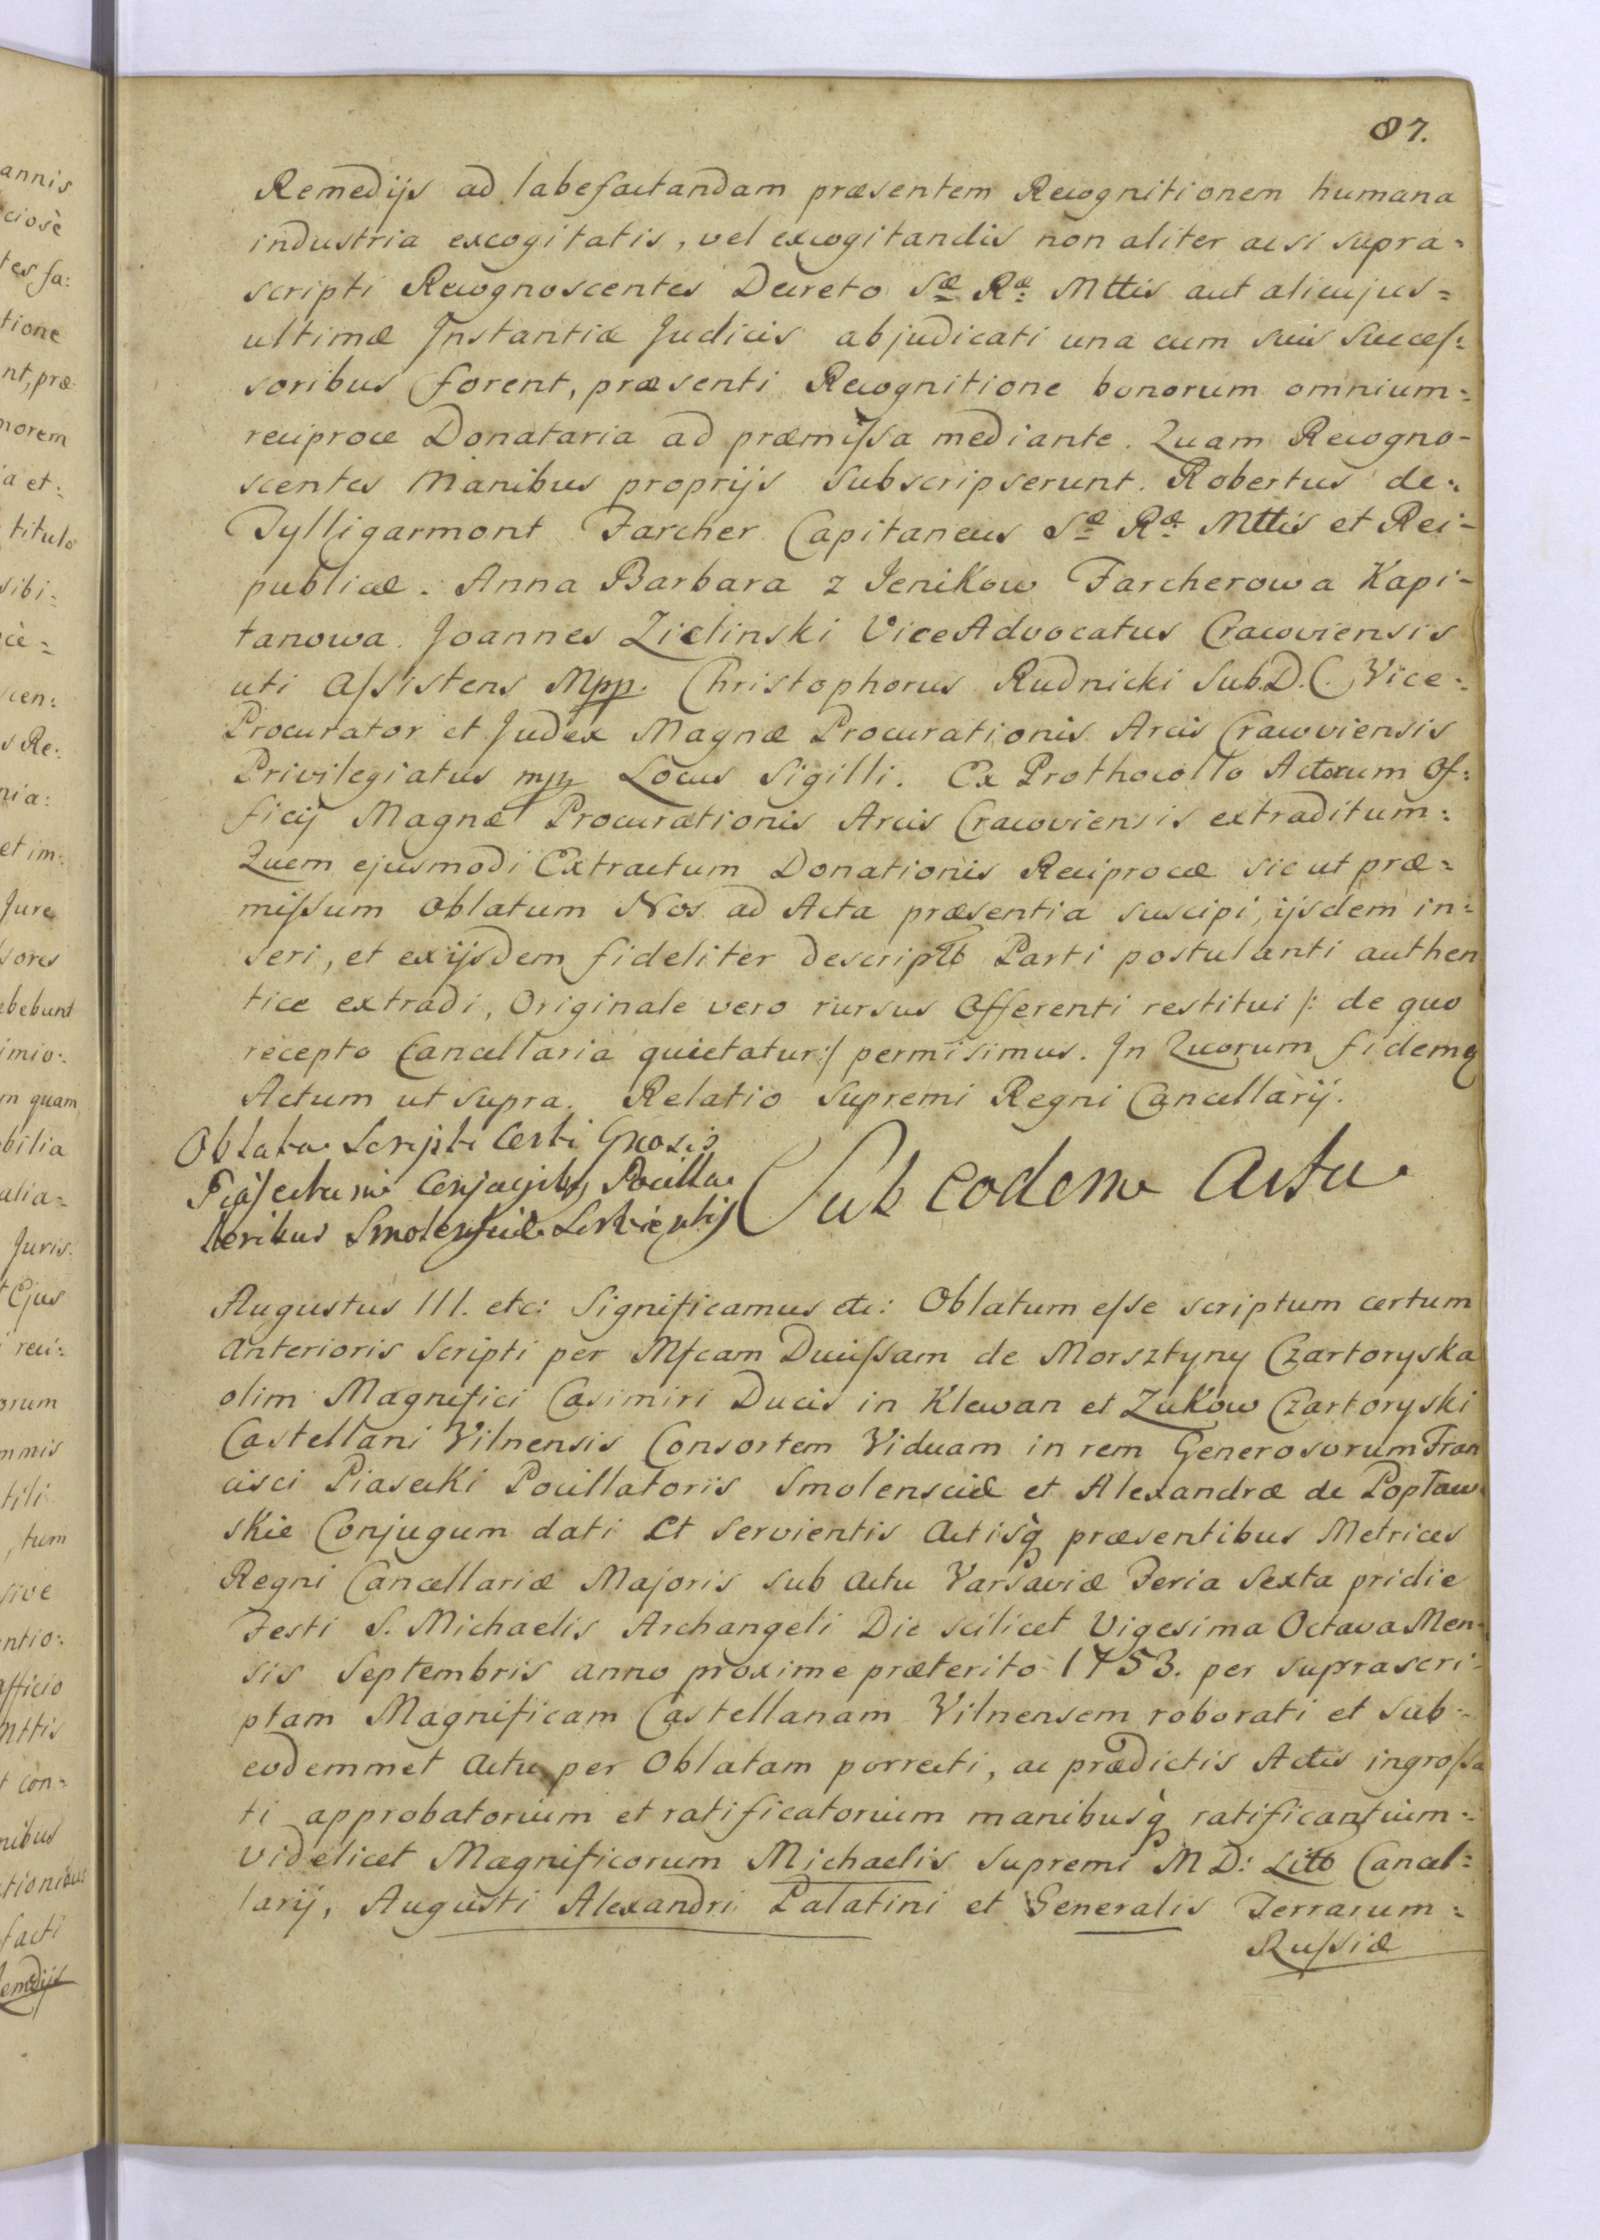 87.
Remedijs ad labefactandam præsentem Recognitionem humana
industria excogitatis, vel excogitandis non aliter acsi supra=
scripti Recognoscentes Decreto Sæ Ræ Mttis aut alicujus=
ultimæ Instantiæ Judicis abjudicati una cum suis Succes:
soribus forent, præsenti Recognitione bonorum omnium=
reciproce Donataria ad præmissa mediante. Quam Recogno-
scentes Manibus proprijs Subscripserunt. Robertus de=
Tylligarmont Farcher Capitaneus Sæ Ræ Mttis et Rei-
publicæ. Anna Barbara z Jenikow Farcherowa Kapi-
tanowa. Joannes Zielinski ViceAdvocatus Cracoviensis
uti Assistens Mpp. Christophorus Rudnicki Sub.D.C. Vice=
Procurator et Judex Magnæ Procurationis Arcis Cracoviensis
Privilegiatus mpp Locus Sigilli. Ex Prothocollo Actorum Of:
ficij Magnæ Procurationis Arcis Cracoviensis extraditum:
Quem ejusmodi Extractum Donationis Reciprocæ sic ut præ=
missum Oblatum Nos ad Acta præsentia suscipi, ijsdem in=
seri, et ex ijsdem fideliter descriptū Parti postulanti authen
tice extradi, Originale vero rursus Offerenti restitui /: de quo
recepto Cancellaria quietatur:/ permisimus. In Quorum fidemq
Actum ut supra. Relatio Supremi Regni Cancellarij.
Oblata Scripti Certi Gnosis
Piasectum Conjugibq Pocilla
toribus Smolensciæ Servientis
Sub eodem Actu
Augustus III. etc: Significamus etc: Oblatum esse scriptum certum
Anterioris Scripti per Mfcam Ducissam de Morsztyny Czartoryska
olim Magnifici Casimiri Ducis in Klewan et Zukow Czartoryski
Castellani Vilnensis Consortem Viduam in rem Generosorum Fran
cisci Piasecki Pocillatoris Smolensciæ et Alexandræ de Popław
skie Conjugum dati et servientis Actisq præsentibus Metrices
Regni Cancellariæ Majoris sub Actu Varsaviæ Feria Sexta pridie
Festi S. Michaelis Archangeli Die scilicet Vigesima Octava Men=
sis Septembris anno proxime præterito 1753. per suprascri-
ptam Magnificam Castellanam Vilnensem roborati et sub=
eodemmet Actu per Oblatam porrecti, ac prædictis Actis ingrossa
ti approbatorium et ratificatorium manibusq ratificantium=
videlicet Magnificorum Michaelis Supremi M D: Litt Cancel=
larij, Augusti Alexandri Palatini et Generalis Terrarum=
Russiæ
annis
ciosè
tes fa:
tione
nt, præ
morem
ia et:
titulo
sibi:
cen:
s Re:
nia:
et im:
Jure
sores
ebebunt
imio:
m quam
bilia
alia=
Juris:
t Ejus
reci=
orum
mnis
tili
, tum
sive
entio:
officio
mttis
t con=
nibus
ctionibus
facti
Remedijs